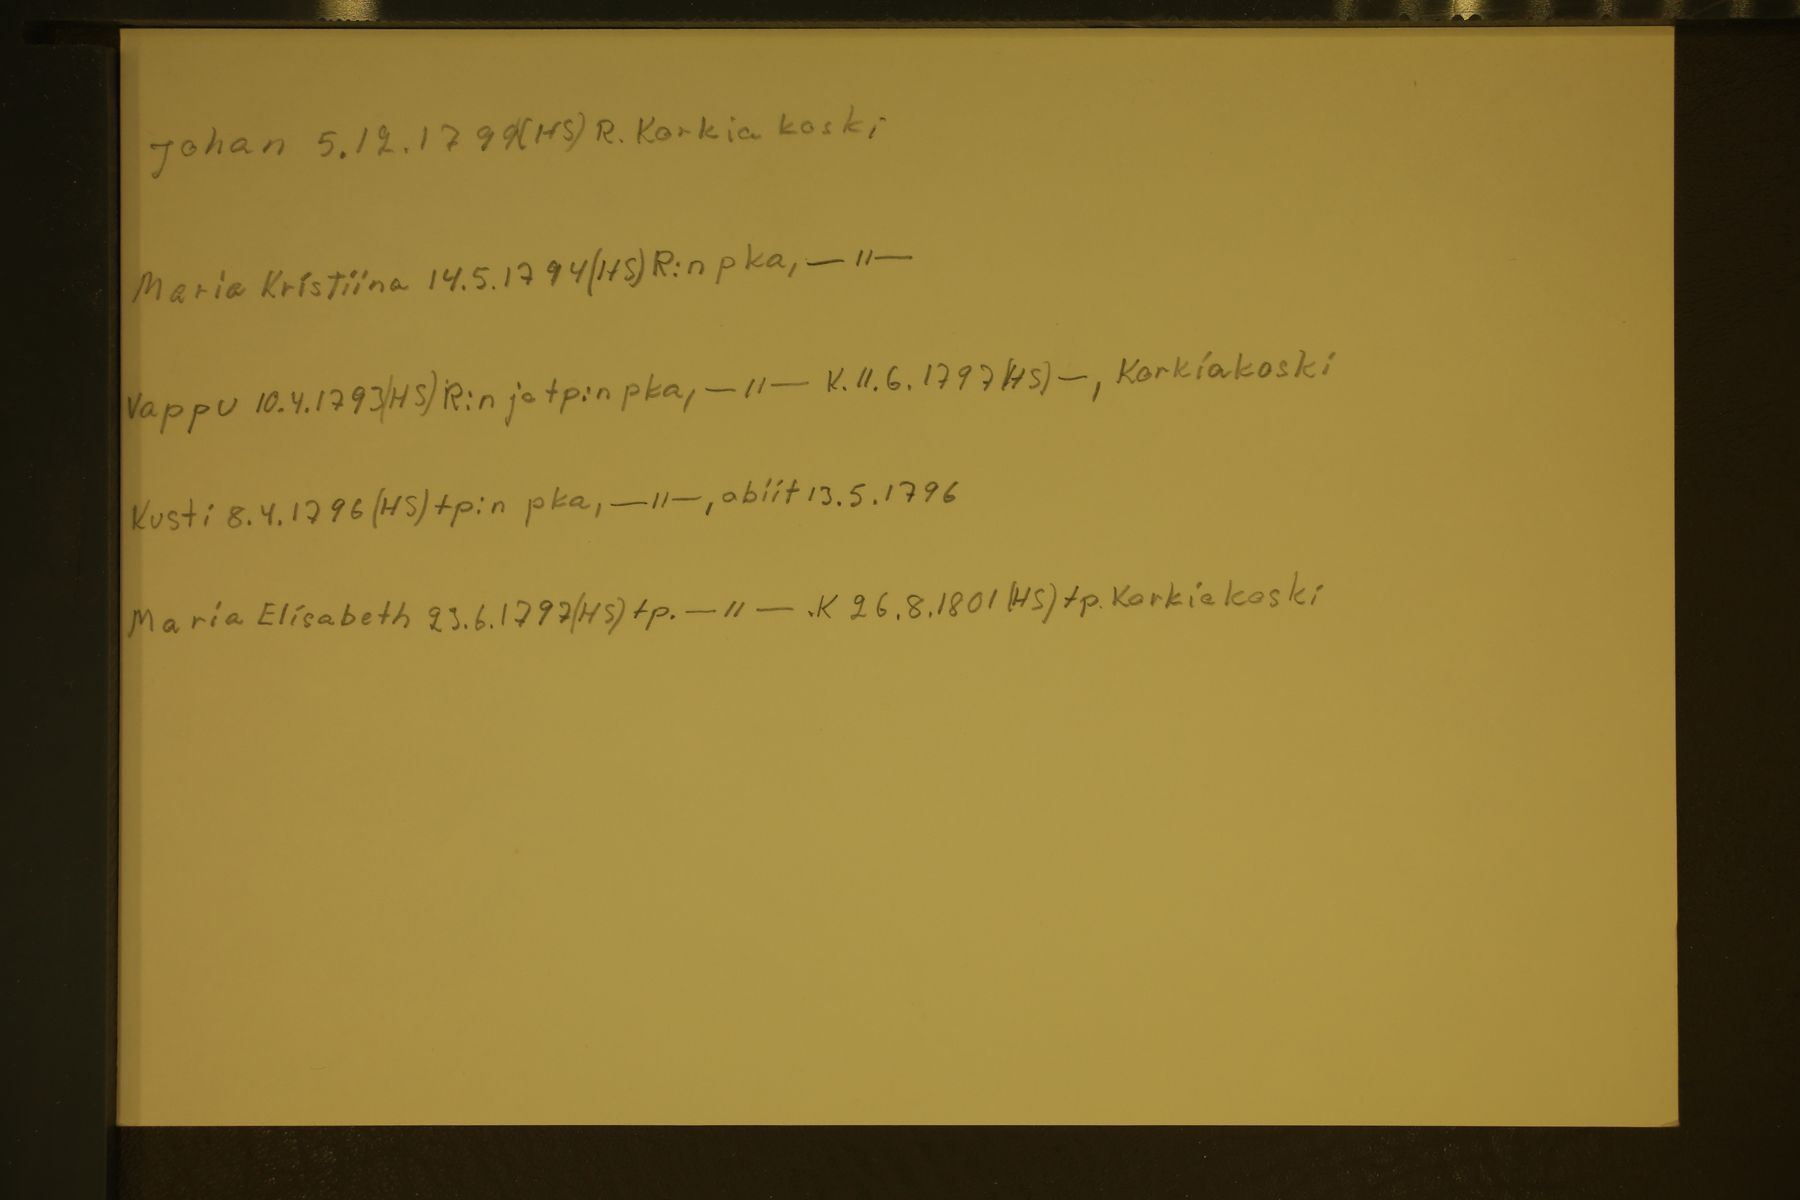 Johan 5.12.1799(HS) R. Korkiakoski
Maria Kristiina 14.5.1794(HS) R:n pka, —"—
Vappu 10.4.1793(HS) R:n ja tp:n pka, —"— K. 11.6.1797(HS) —, Korkiakoski
Kusti 8.4.1796(HS) tp:n pka, —"—, obiit 13.5.1796
Maria Elisabeth 23.6.1797(HS) tp. —"— .K 26.8.1801(HS) tp. Korkiakoski